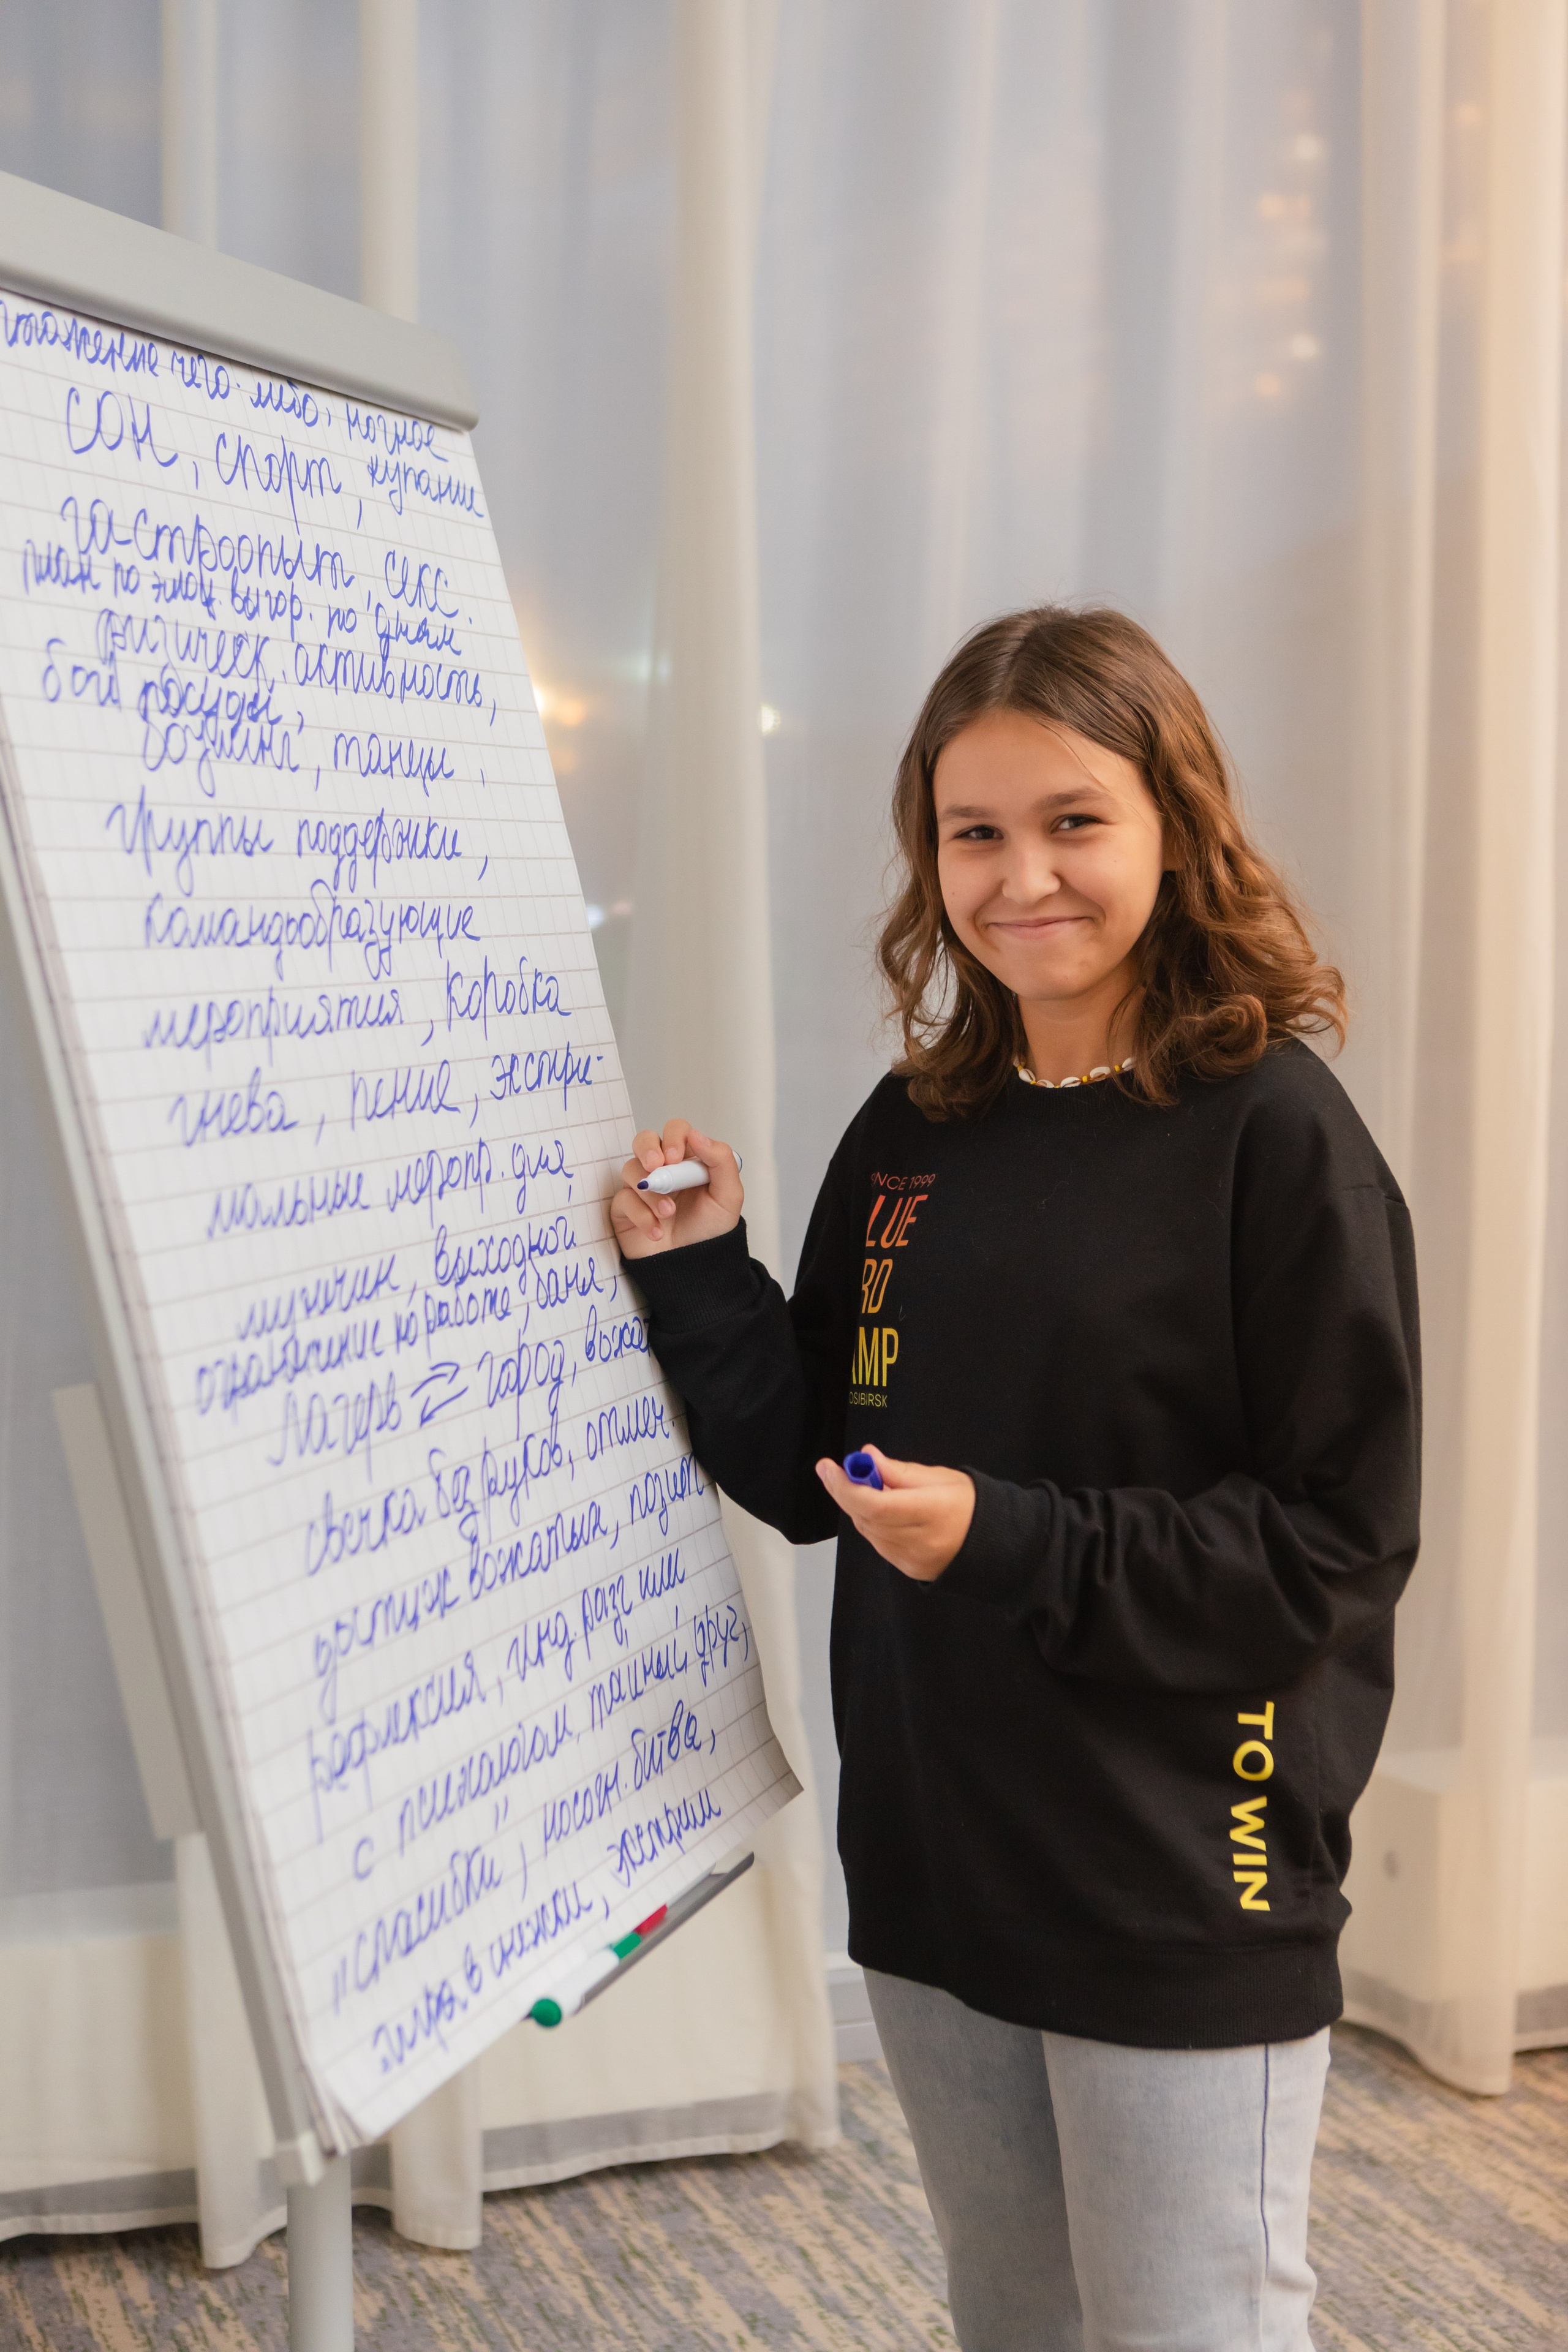 чего-либо, ночное
сон, спорт, купание
гастроопыт, секс.
план по эмоц. выгор. по дням
физическ. активность,
бой посуды,
боулинг, танцы,
группы поддержки,
командообразующие
мероприятия, коробка
гнева, пение, экстре-
мальные меропр. для
мужчин, выходной,
по работе, баня,
Лагерь ⇄ город,
свечка без руков, отмен.
вожатых, позит
рефлексия, инд. разг. или
с психологом, тайный друг,
"спасибки", носочн. битва,
игра в снежки, экстрим
SINCE 1999
LUE
RD
AMP
OSIBIRSK
TO WIN